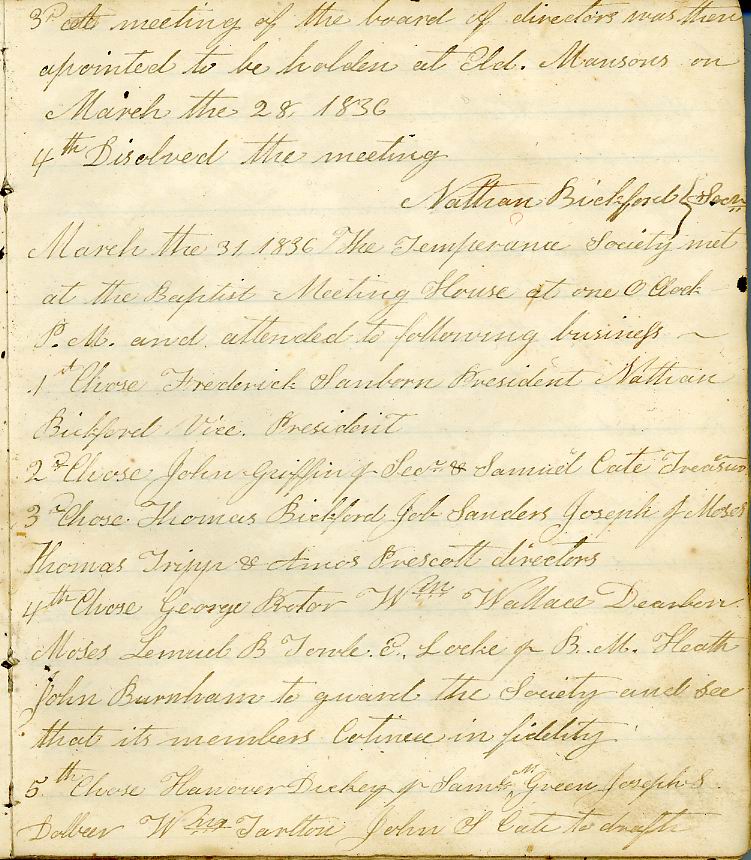 3rd at meeting of the board of directors was then
apointed to be holden at Eld. Mansons on
March the 28 1836
4th Disolved the meeting
Nathan Bickford } Secr
March the 31 1836 The Temperance Society met
at the Baptist Meeting House at one O Clock
P. M. and attended to following business ~
1st Chose Frederick Sanborn President Nathan
Bickford Vice. President
2d Chose John Griffin Jr Secr & Samuel Cate Treasurer
3d Chose Thomas Bickford Job Sanders Joseph J Moses
Thomas Tripp & Amos Prescott directors
4th Chose George Protor Wm Wallace Dearborn
Moses Lemuel B Towle E. Locke Jr B. M. Heath
John Burnham to guard the Society and see
that its members Cotinue in fidelity
5th Chose Hanover Dickey Jr Saml M Green Joseph S
Dolbeer Wm Tarlton John S Cate to draft